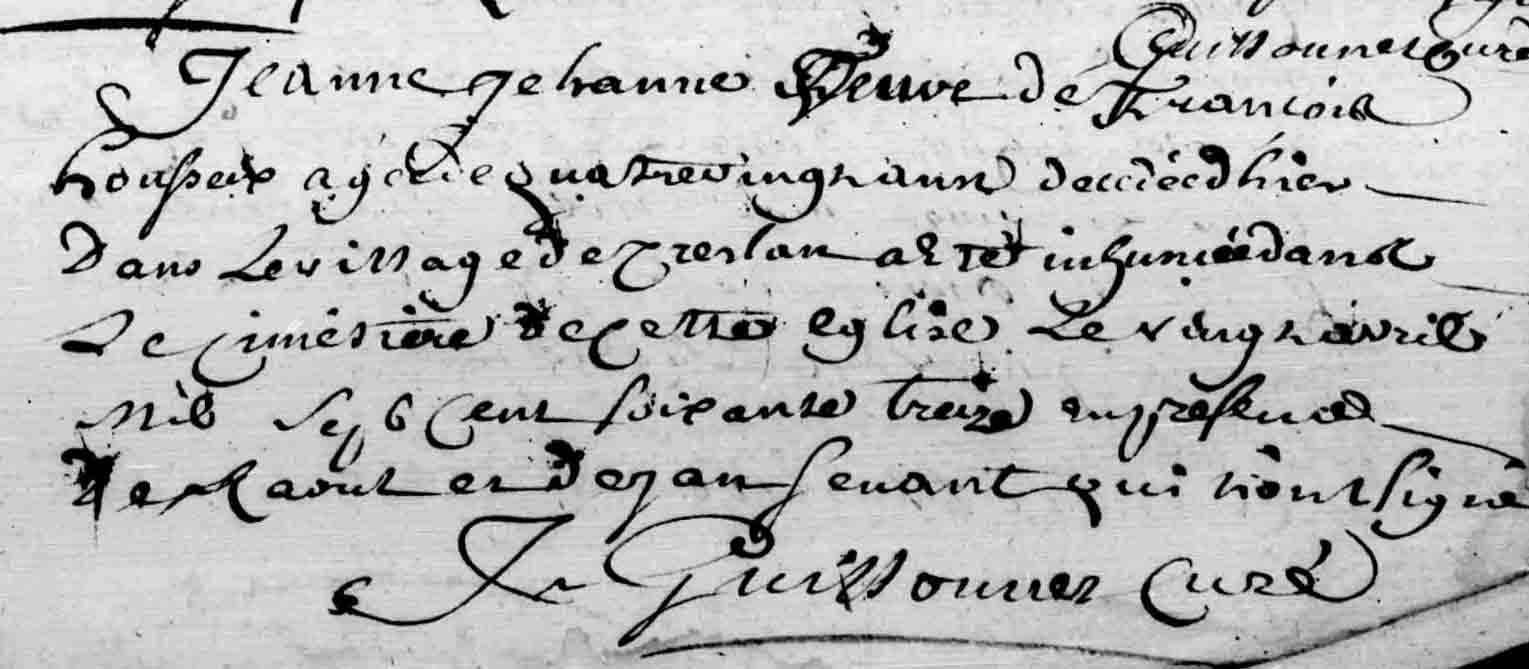 Guissonner curé
Jeanne Jehanne veuve de François
housseix agée de quatrevingt ans deccedéé d'hier
Dans Le village de preslan a eté inhumée dans
Le cimetiere de cette eglise Le vingt avril
Mil Sept Cent soixante treize en presence
de Raoul et de jan Senant qui n'ont signé
J Guissonner curé